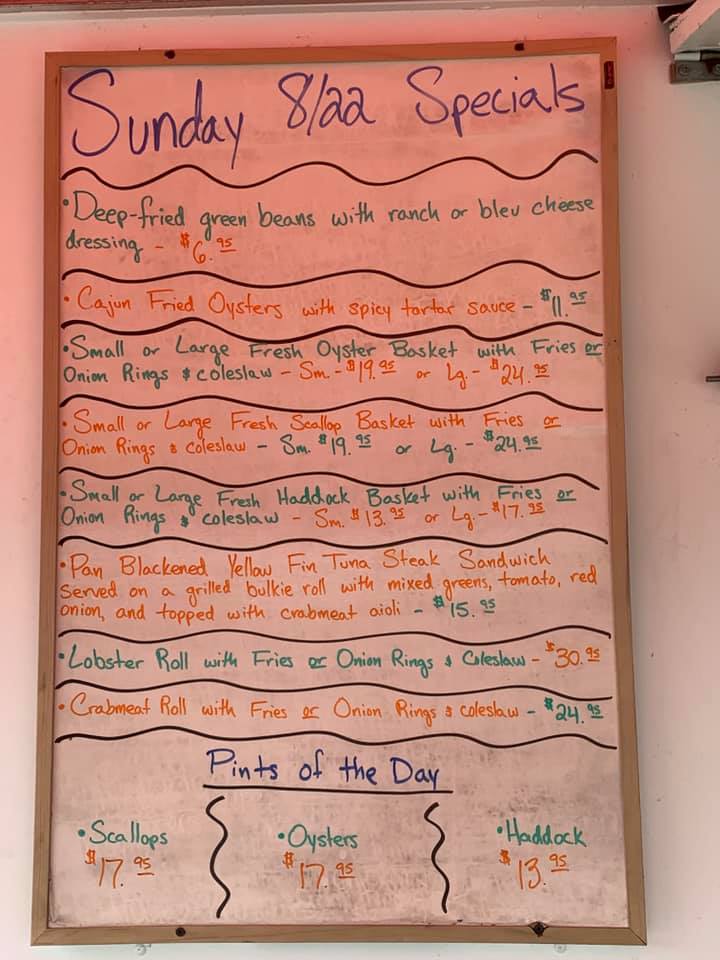 Sunday 8/22 Specials
• Deep-fried green beans with ranch or bleu cheese
dressing - $6.95
• Cajun Fried Oysters with spicy tartar sauce - $11.95
• Small or Large Fresh Oyster Basket with Fries or
Onion Rings & coleslaw - Sm. - $19.95 or Lg. - $24.95
• Small or Large Fresh Scallop Basket with Fries or
Onion Rings & coleslaw - Sm. $19.95 or Lg. - $24.95
• Small or Large Fresh Haddock Basket with Fries or
Onion Rings & coleslaw - Sm. $13.95 or Lg. - $17.95
• Pan Blackened Yellow Fin Tuna Steak Sandwich
served on a grilled bulkie roll with mixed greens, tomato, red
onion, and topped with crabmeat aioli - $15.95
• Lobster Roll with Fries or Onion Rings & Coleslaw - $30.95
• Crabmeat Roll with Fries or Onion Rings & coleslaw - $24.95
Pints of the Day
• Scallops • Oysters • Haddock
$17.95 $17.95 $13.95